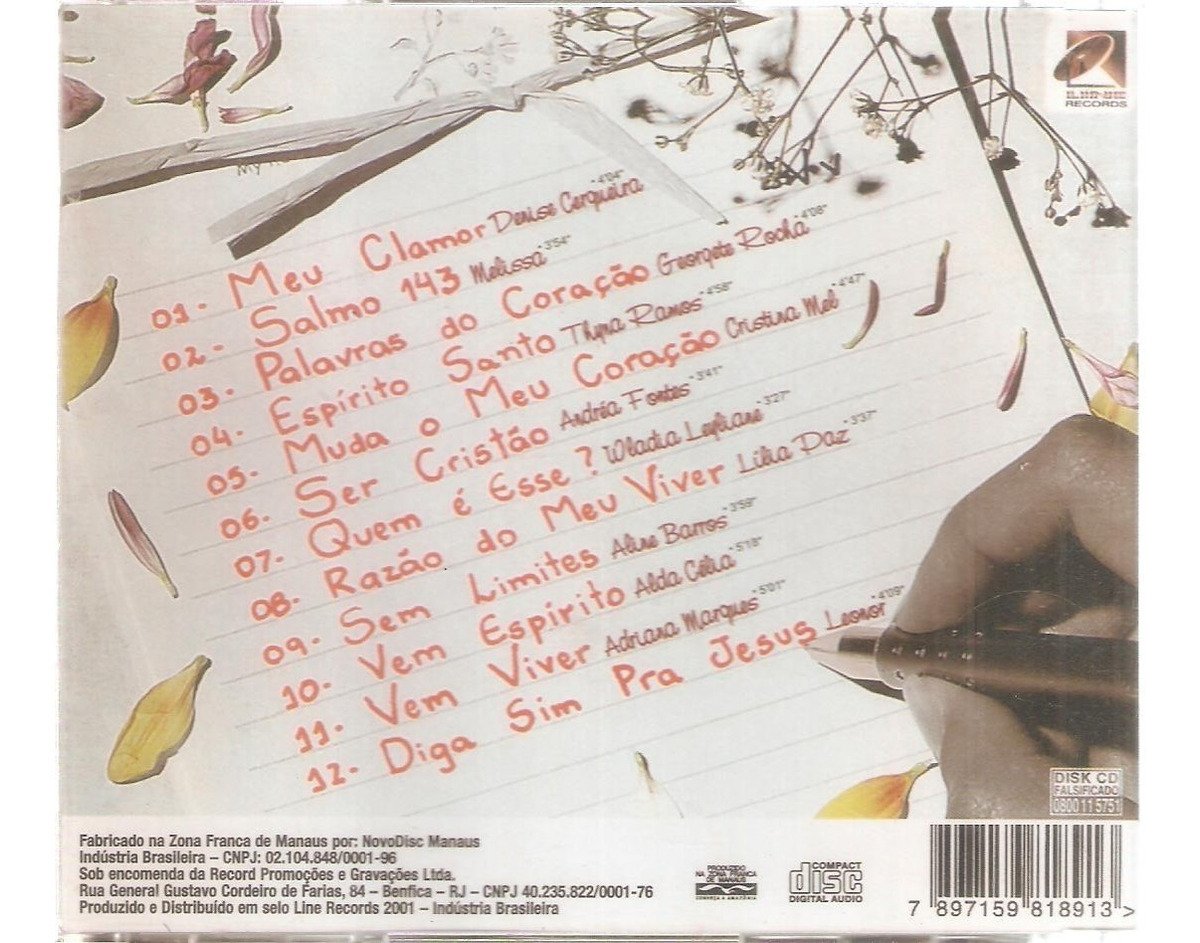 LINE
RECORDS
01- Meu Clamor Denise Cerqueira •4'04"
02- Salmo 143 Melissa •3'54"
03- Palavras do Coração Georgete Rocha •4'08"
04- Espírito Santo Thyna Ramos •4'58"
05- Muda o Meu Coração Cristina Mel •4'47"
06- Ser Cristão Andréa Fontes •3'41"
07- Quem é Esse? Wladia Leyliane •3'27"
08- Razão do Meu Viver Lília Paz •3'37"
09- Sem Limites Aline Barros •3'59"
10- Vem Espírito Alda Célia •5'18"
11- Vem Viver Adriana Marques •5'01"
12- Diga Sim Pra Jesus Leonor •4'09"
DISK CD
FALSIFICADO
0800 11 5751
Fabricado na Zona Franca de Manaus por: NovoDisc Manaus
Indústria Brasileira – CNPJ: 02.104.848/0001-96
Sob encomenda da Record Promoções e Gravações Ltda.
Rua General Gustavo Cordeiro de Farias, 84 – Benfica – RJ – CNPJ 40.235.822/0001-76
Produzido e Distribuído em selo Line Records 2001 – Indústria Brasileira
PRODUZIDO
NA ZONA FRANCA
DE MANAUS
CONHEÇA A AMAZÔNIA
COMPACT
disc
DIGITAL AUDIO
7 897159 818913 >